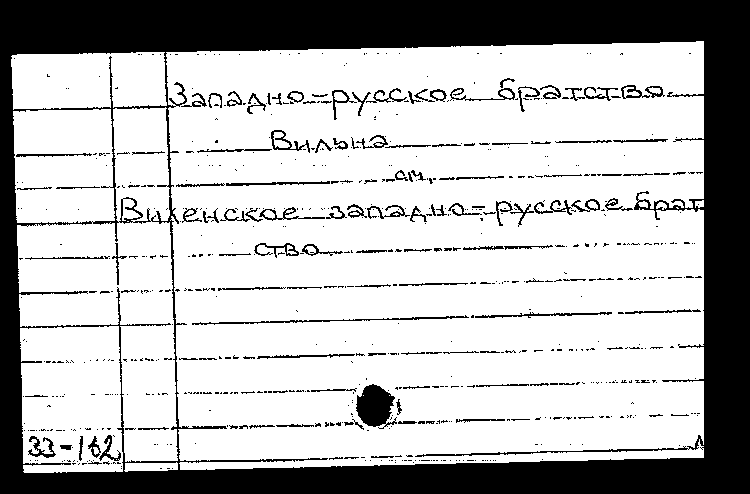 Западно-русское братство.
Вильна
см.
Виленское западно-русское брат
ство
33-162